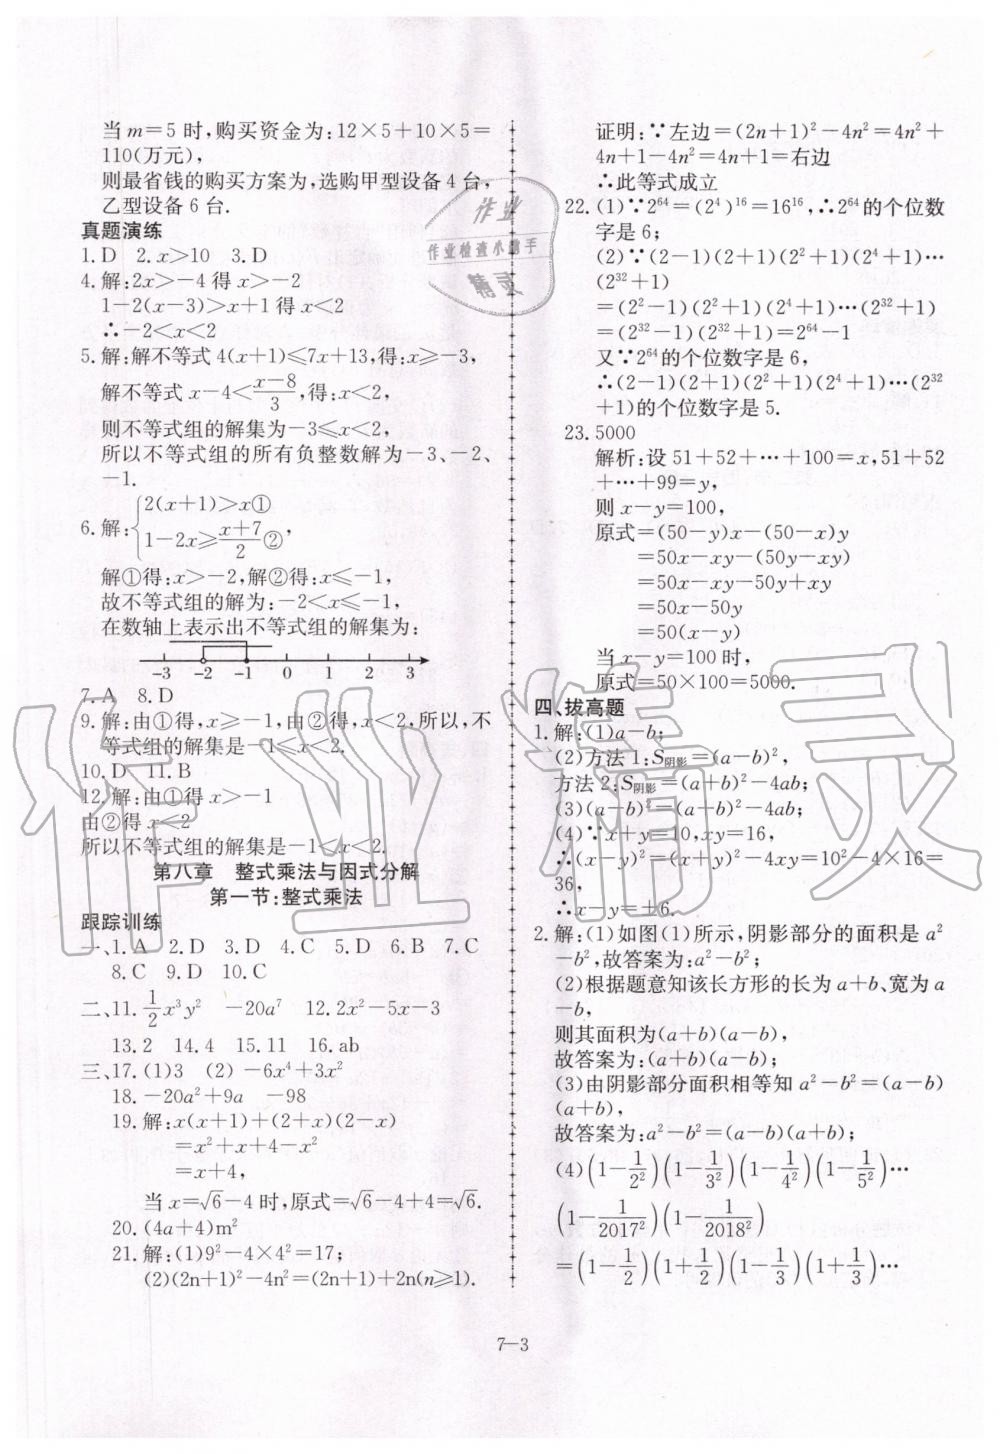 当 m=5 时,购买资金为:12×5+10×5=
110(万元),
则最省钱的购买方案为,选购甲型设备 4 台,
乙型设备 6 台.
真题演练
1. D 2. x>10 3. D
4. 解:2x>-4得 x>-2
1-2(x-3)>x+1得 x<2
∴-2<x<2
5. 解:解不等式 4(x+1)≤7x+13,得:x≥-3,
解不等式 x-4<(x-8)/3,得:x<2,
则不等式组的解集为-3≤x<2,
所以不等式组的所有负整数解为-3、-2、
-1.
6. 解:{2(x+1)>x①
1-2x≥(x+7)/2②,
解①得:x>-2,解②得:x≤-1,
故不等式组的解为:-2<x≤-1,
在数轴上表示出不等式组的解集为:
-3 -2 -1 0 1 2 3
7. A 8. D
9. 解:由①得,x≥-1,由②得,x<2,所以,不
等式组的解集是-1≤x<2.
10. D 11. B
12. 解:由①得 x>-1
由②得 x<2
所以不等式组的解集是-1<x<2.
第八章 整式乘法与因式分解
第一节:整式乘法
跟踪训练
一、1. A 2. D 3. D 4. C 5. D 6. B 7. C
8. C 9. D 10. C
二、11. 1/2 x³y² -20a⁷ 12. 2x²-5x-3
13. 2 14. 4 15. 11 16. ab
三、17. (1)3 (2) -6x⁴+3x²
18. -20a²+9a -98
19. 解:x(x+1)+(2+x)(2-x)
=x²+x+4-x²
=x+4,
当 x=√6-4 时,原式=√6-4+4=√6.
20. (4a+4)m²
21. 解:(1)9²-4×4²=17;
(2)(2n+1)²-4n²=(2n+1)+2n(n≥1).
证明:∵左边=(2n+1)²-4n²=4n²+
4n+1-4n²=4n+1=右边
∴此等式成立
22. (1)∵2⁶⁴=(2⁴)¹⁶=16¹⁶,∴2⁶⁴的个位数
字是 6;
(2)∵(2-1)(2+1)(2²+1)(2⁴+1)…
(2³²+1)
=(2²-1)(2²+1)(2⁴+1)…(2³²+1)
=(2³²-1)(2³²+1)=2⁶⁴-1
又∵2⁶⁴的个位数字是 6,
∴(2-1)(2+1)(2²+1)(2⁴+1)…(2³²
+1)的个位数字是 5.
23. 5000
解析:设 51+52+…+100=x,51+52
+…+99=y,
则 x-y=100,
原式=(50-y)x-(50-x)y
=50x-xy-(50y-xy)
=50x-xy-50y+xy
=50x-50y
=50(x-y)
当 x-y=100 时,
原式=50×100=5000.
四、拔高题
1. 解:(1)a-b;
(2)方法 1:S阴影=(a-b)²,
方法 2:S阴影=(a+b)²-4ab;
(3)(a-b)²=(a+b)²-4ab;
(4)∵x+y=10,xy=16,
∴(x-y)²=(x+y)²-4xy=10²-4×16=
36,
∴x-y=±6.
2. 解:(1)如图(1)所示,阴影部分的面积是 a²
-b²,故答案为:a²-b²;
(2)根据题意知该长方形的长为 a+b、宽为 a
-b,
则其面积为(a+b)(a-b),
故答案为:(a+b)(a-b);
(3)由阴影部分面积相等知 a²-b²=(a-b)
(a+b),
故答案为:a²-b²=(a-b)(a+b);
(4)(1-1/2²)(1-1/3²)(1-1/4²)(1-1/5²)…
(1-1/2017²)(1-1/2018²)
=(1-1/2)(1+1/2)(1-1/3)(1+1/3)…
7—3
作业
作业检查小助手
精灵
作业精灵